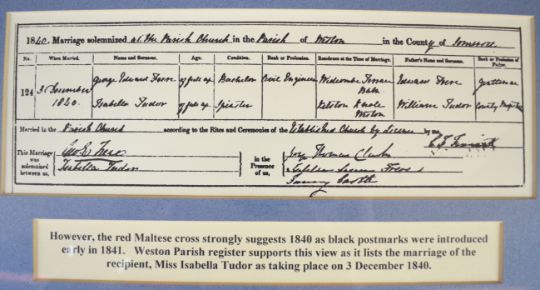 1840. Marriage solemnized at the Parish Church in the Parish of Weston in the County of Somerset
No. When Married. Name and Surname. Age. Condition. Rank or Profession. Residence at the Time of Marriage. Father's Name and Surname. Rank or Profession of Father.
124 3 December George Edward Frere of full age Bachelor Civil Engineer Widcombe Terrace Bath Edward Frere Gentleman
1840. Isabella Tudor of full age Spinster Weston William Tudor
Married in the Parish Church according to the Rites and Ceremonies of the Established Church by License by me,
This Marriage was solemnized between us, Geo E Frere Isabella Tudor in the Presence of us,
However, the red Maltese cross strongly suggests 1840 as black postmarks were introduced
early in 1841. Weston Parish register supports this view as it lists the marriage of the
recipient, Miss Isabella Tudor as taking place on 3 December 1840.